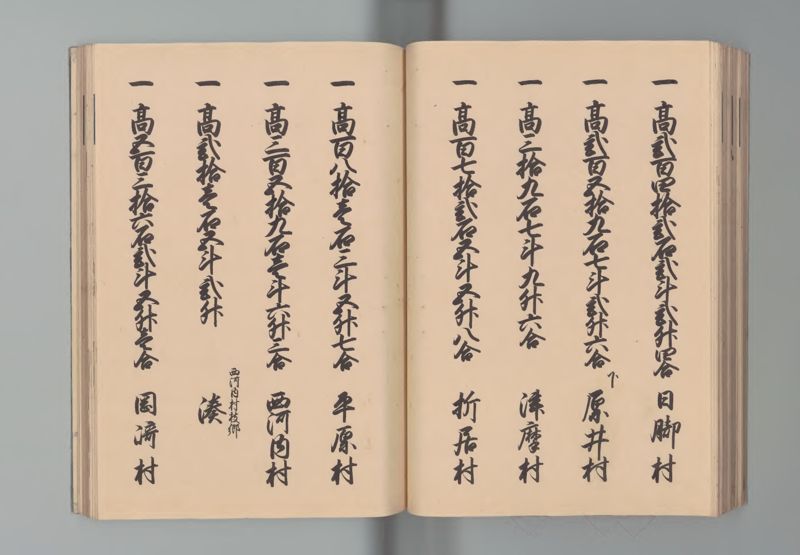 一 高弐百四拾弐石弐斗弐升四合 日脚村
一 高弐百五拾九石七斗弐升六合 下 原井村
一 高三拾九石七斗九升六合 津摩村
一 高百七拾弐石五斗五升八合 折居村
一 高百八拾壱石三斗五升七合 平原村
一 高三百五拾九石壱斗六升三合 西河内村
西河内村枝郷
一 高弐拾壱石五斗弐升 湊
一 高五百三拾六石弐斗五升壱合 岡崎村